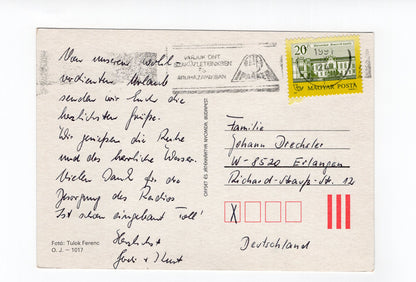 Von unserem wohl
verdienten Urlaub
senden wir Euch die
herzlichsten Grüße.
Wir genießen die Ruhe
und das herrliche Wasser.
Vielen Dank für die
Besorgung des Radios
Ist schon eingebaut Toll!
Herzlichst
Horst
Fotó: Tulok Ferenc
O. J. – 1017
OFFSET ÉS JÁTÉKKÁRTYA NYOMDA, BUDAPEST
VÁRJUK ÖNT
ÜZLETEINKBEN
ÉS
ÁRUHÁZAINKBAN
1991
20 Ft
MAGYAR POSTA
Familie
Johann Drechsler
W-8520 Erlangen
Richard-Strauß-Str. 12
X
Deutschland